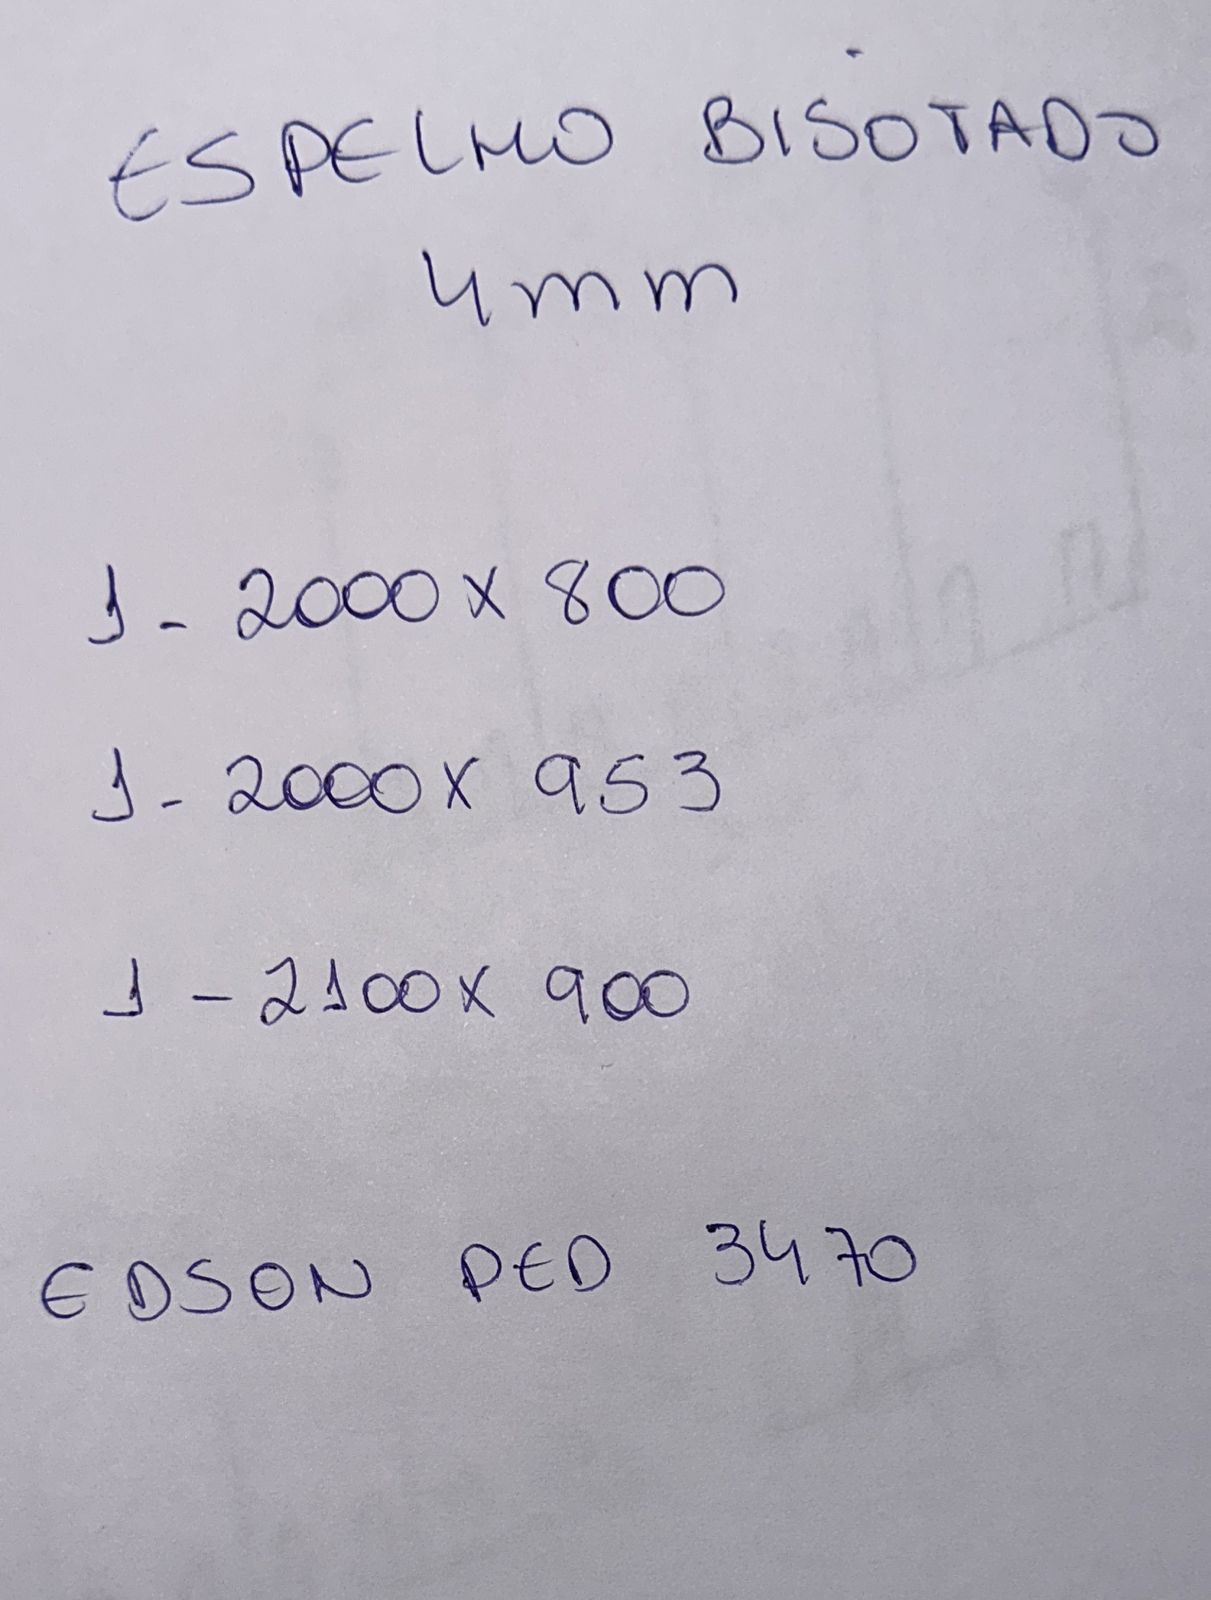 ESPELHO BISOTADO
4mm
1 - 2000 x 800
1 - 2000 x 953
1 - 2100 x 900
EDSON PED 3470